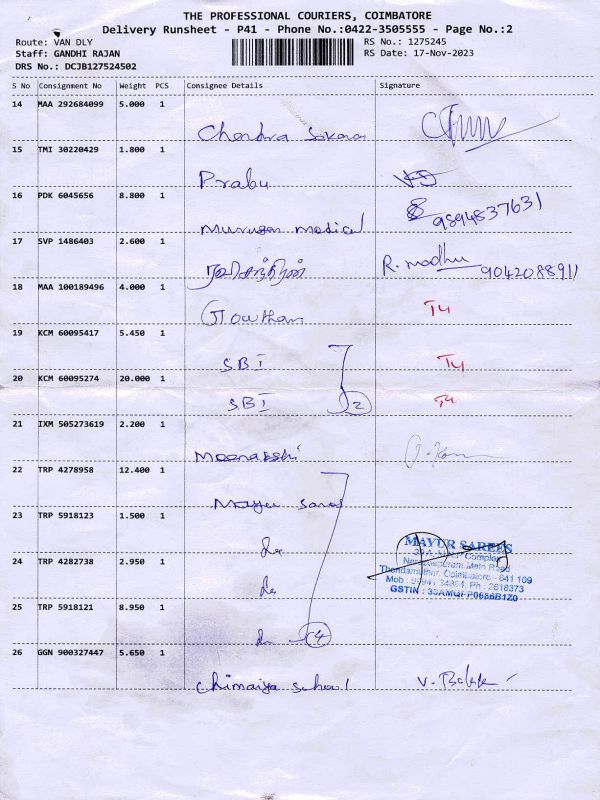 THE PROFESSIONAL COURIERS, COIMBATORE
Delivery Runsheet - P41 - Phone No.:0422-3505555 - Page No.:2
Route: VAN DLY
RS No.: 1275245
Staff: GANDHI RAJAN
RS Date: 17-Nov-2023
DRS No.: DCJB127524502
S No Consignment No Weight PCS Consignee Details Signature
14 MAA 292684099 5.000 1
Chandra Sekaran
15 TMI 30220429 1.800 1
Prabu
16 PDK 6045656 8.800 1
Murugan medical 9894837631
17 SVP 1486403 2.600 1
ரவிசந்திரன் R. madhu 9042088911
18 MAA 100189496 4.000 1
Gowtham T4
19 KCM 60095417 5.450 1
SBI T4
20 KCM 60095274 20.000 1
SBI 2 T4
21 IXM 505273619 2.200 1
Meenakshi
22 TRP 4278958 12.400 1
Mayur sares
23 TRP 5918123 1.500 1
do
24 TRP 4282738 2.950 1
do
25 TRP 5918121 8.950 1
do 4
MAYUR SAREES
Main Road
Thondamuthur, Coimbatore - 641 109
Ph : 2618373
GSTIN :
26 GGN 900327447 5.650 1
Chinmaiya School